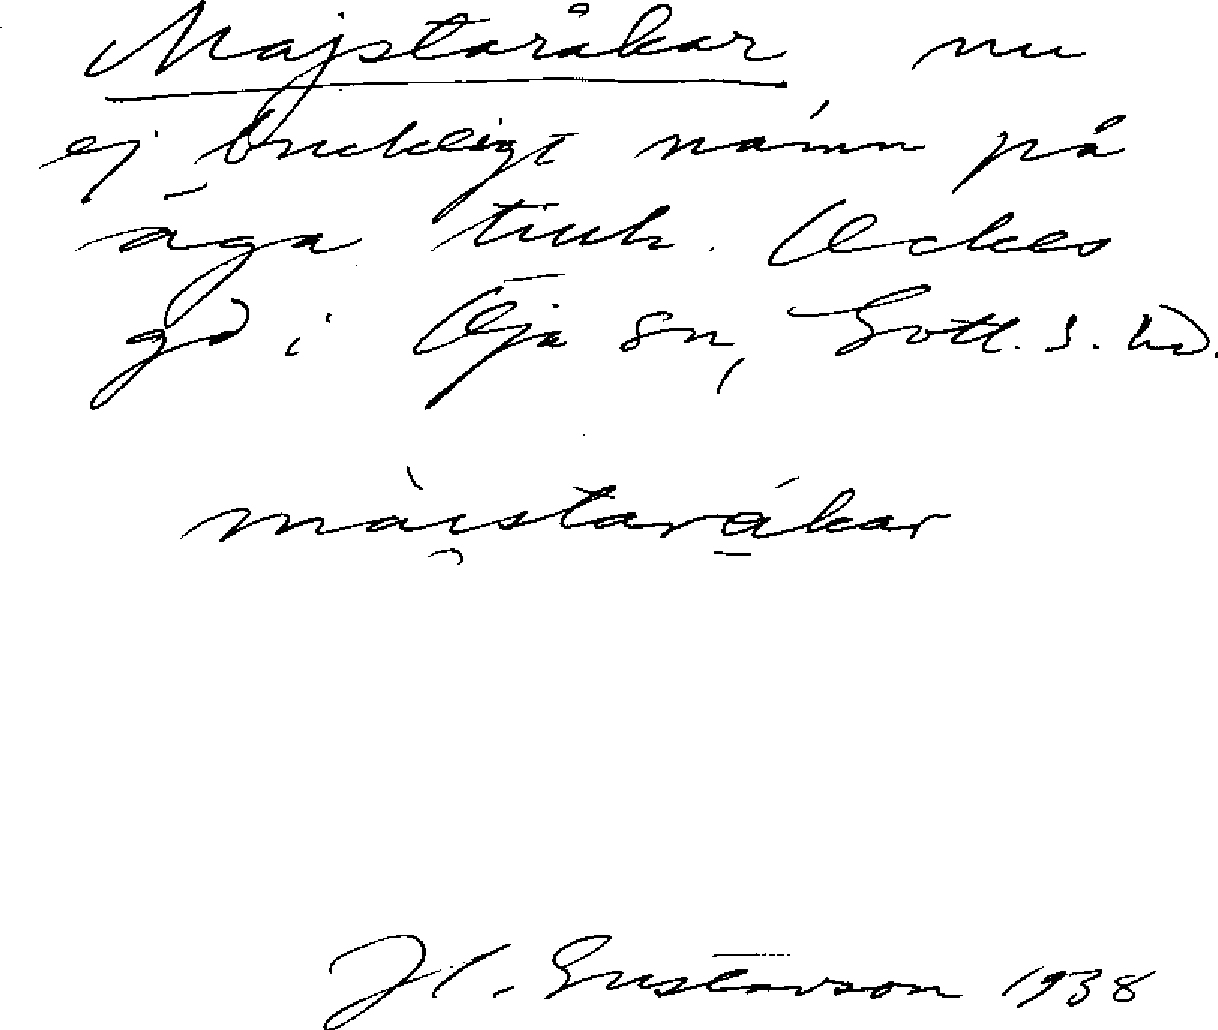 Majstaråkar nu
ej brukligt namn på
äga tiuh. Ockes
gd i Öja sn, Gotl. s. hd.
màistaråkar
H. Gustavson 1938